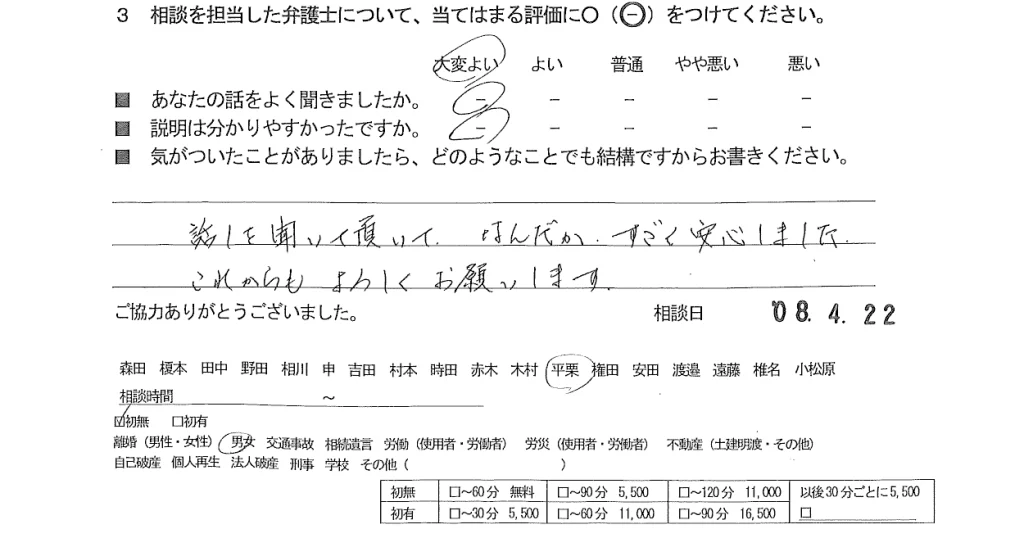 3 相談を担当した弁護士について、当てはまる評価に○（㊀）をつけてください。
大変よい よい 普通 やや悪い 悪い
■ あなたの話をよく聞きましたか。 － － － － －
■ 説明は分かりやすかったですか。 － － － － －
■ 気がついたことがありましたら、どのようなことでも結構ですからお書きください。
話しを聞いて頂いて、なんだか、すごく安心しました。
これからもよろしくお願いします。
ご協力ありがとうございました。 相談日 '08. 4. 22
森田 榎本 田中 野田 相川 申 吉田 村本 時田 赤木 木村 平栗 権田 安田 渡邉 遠藤 椎名 小松原
相談時間 ～
☑初無 □初有
離婚（男性・女性） 男女 交通事故 相続遺言 労働（使用者・労働者） 労災（使用者・労働者） 不動産（土建明渡・その他）
自己破産 個人再生 法人破産 刑事 学校 その他（ ）
初無 □～60分 無料 □～90分 5,500 □～120分 11,000 以後30分ごとに5,500
初有 □～30分 5,500 □～60分 11,000 □～90分 16,500 □